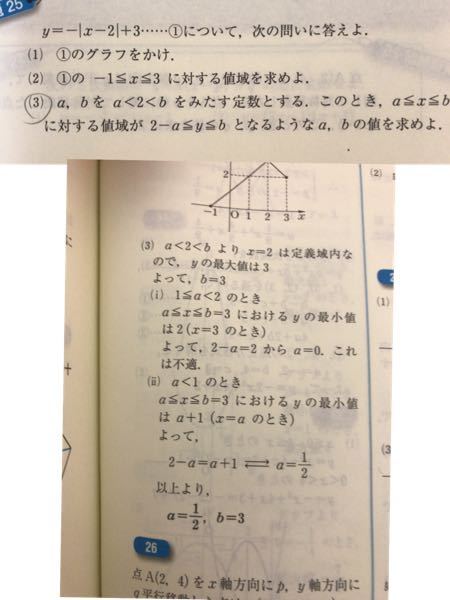 25
y=-|x-2|+3……①について,次の問いに答えよ.
(1) ①のグラフをかけ.
(2) ①の -1≦x≦3 に対する値域を求めよ.
(3) a, b を a<2<b をみたす定数とする.このとき, a≦x≦b
に対する値域が 2-a≦y≦b となるような a, b の値を求めよ.
2
-1 O 1 2 3 x
(3) a<2<b より x=2 は定義域内な
ので, y の最大値は3
よって, b=3
(i) 1≦a<2 のとき
a≦x≦b=3 における y の最小値
は 2 (x=3 のとき)
よって, 2-a=2 から a=0. これ
は不適.
(ii) a<1 のとき
a≦x≦b=3 における y の最小値
は a+1 (x=a のとき)
よって,
2-a=a+1 ⟺ a=1/2
以上より,
a=1/2, b=3
26
点A(2, 4)を x 軸方向に p, y 軸方向に
(2)
(1)